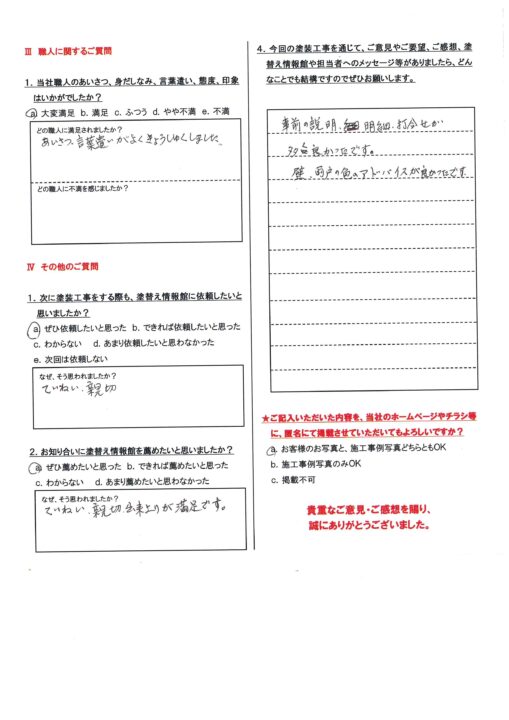 Ⅲ 職人に関するご質問
1. 当社職人のあいさつ、身だしなみ、言葉遣い、態度、印象
はいかがでしたか？
a 大変満足 b. 満足 c. ふつう d. やや不満 e. 不満
どの職人に満足されましたか？
あいさつ、言葉遣いがよくきょうしゅくしました。
どの職人に不満を感じましたか？
Ⅳ その他のご質問
1. 次に塗装工事をする際も、塗替え情報館に依頼したいと
思いましたか？
a ぜひ依頼したいと思った b. できれば依頼したいと思った
c. わからない d. あまり依頼したいと思わなかった
e. 次回は依頼しない
なぜ、そう思われましたか？
ていねい、親切
2. お知り合いに塗替え情報館を薦めたいと思いましたか？
a ぜひ薦めたいと思った b. できれば薦めたいと思った
c. わからない d. あまり薦めたいと思わなかった
なぜ、そう思われましたか？
ていねい、親切、出来上りが満足です。
4. 今回の塗装工事を通じて、ご意見やご要望、ご感想、塗
替え情報館や担当者へのメッセージ等がありましたら、どん
なことでも結構ですのでぜひお願いします。
事前の説明、明細、打合せが
良かったです。
壁、雨戸の色のアドバイスが良かったです
★ご記入いただいた内容を、当社のホームページやチラシ等
に、匿名にて掲載させていただいてもよろしいですか？
a. お客様のお写真と、施工事例写真どちらともOK
b. 施工事例写真のみOK
c. 掲載不可
貴重なご意見・ご感想を賜り、
誠にありがとうございました。